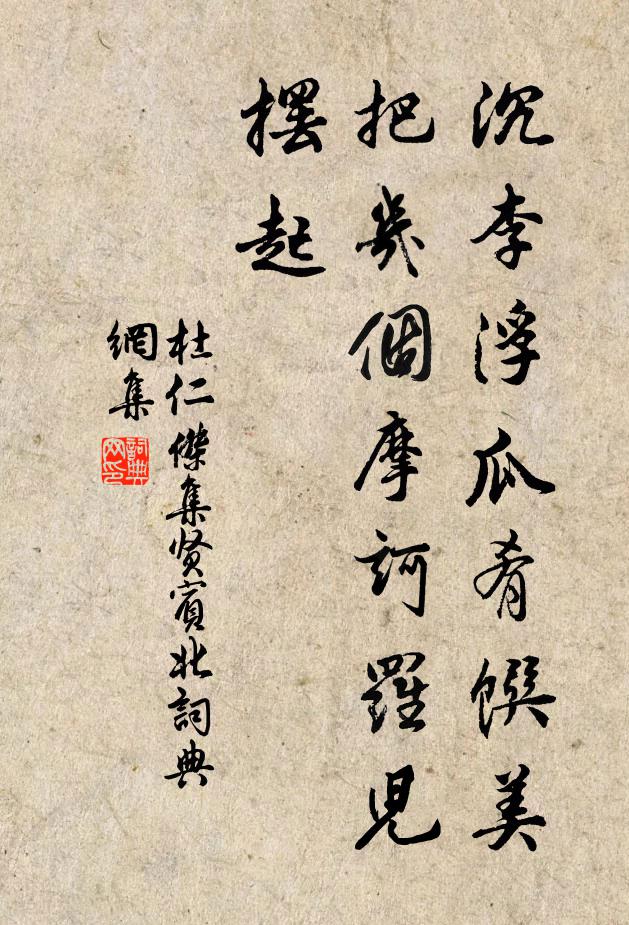 沉李浮瓜肴饌美
把幾個摩訶羅兒
擺起
杜仁傑集贤賓北詞典
網集
詞典
网印